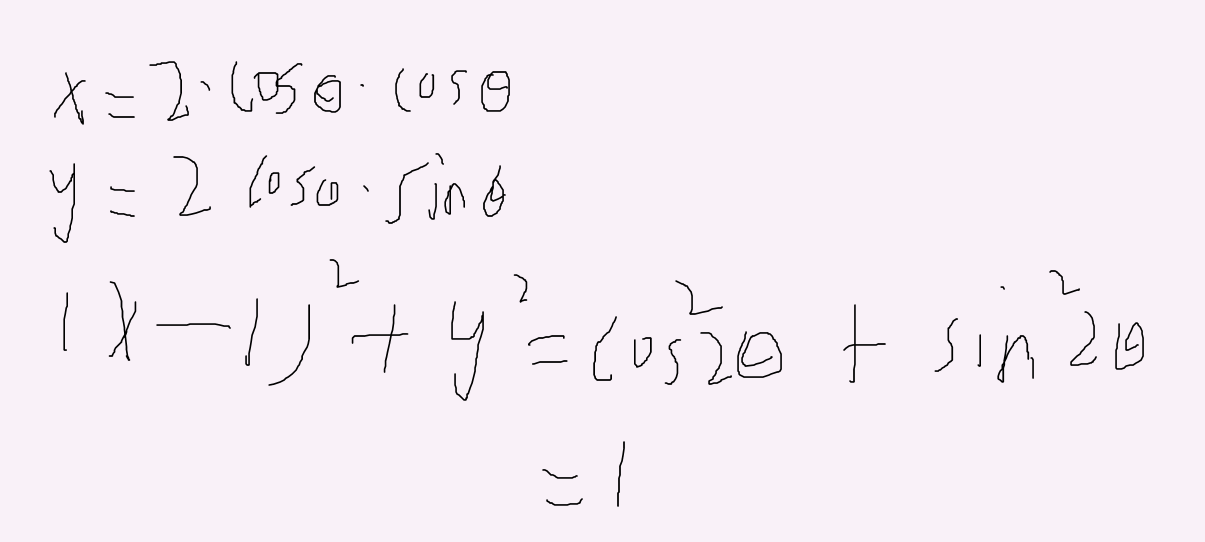 x = 2·cosθ·cosθ
y = 2 cosθ·sinθ
(x-1)² + y² = cos²2θ + sin²2θ
= 1